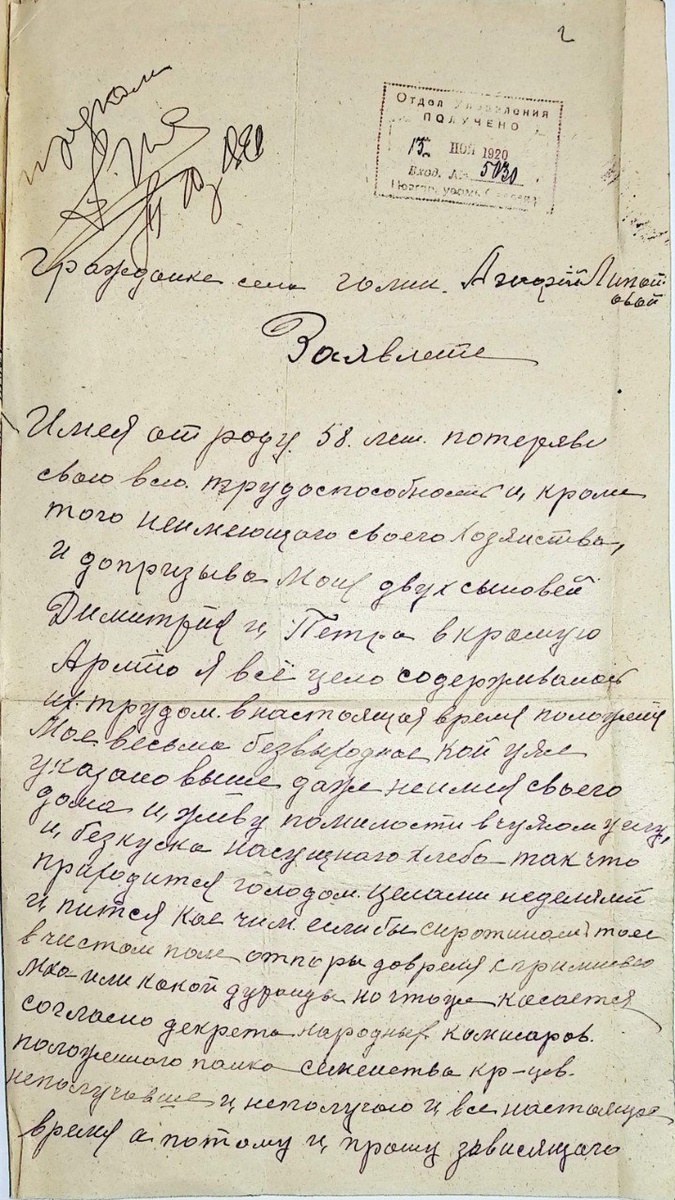 2
Отдел Управления
ПОЛУЧЕНО
15 НОЯ 1920
Вход. № 5030
Гражданке села Липат
овой
Заявлете
Имея от роду. 58. лет. потерявъ
свою всю. трудоспособность и, кроме
того неимеющаго своего хозяйства,
и допризыва моих двух сыновей
Димитрия и, Петра в красную
Армию я всё цело содержалась
их. трудом. в настоящая время положения
Мое весьма безвыходное кой уже
указано выше даже неимея своего
дома и, живу помилости в чужом углу,
и, без куска насущнаго хлеба так что
приходится голодом. целами неделями
и, пится кое чим. если бы
в чистом поле до время с примисью
мха или какой дуранды но чтоже касается
согласно декрета народных комисаров.
положеннаго паика семейства кр-цев.
неполучавше и неполучаю и все настоящее
время а потому и, прошу зависящаго